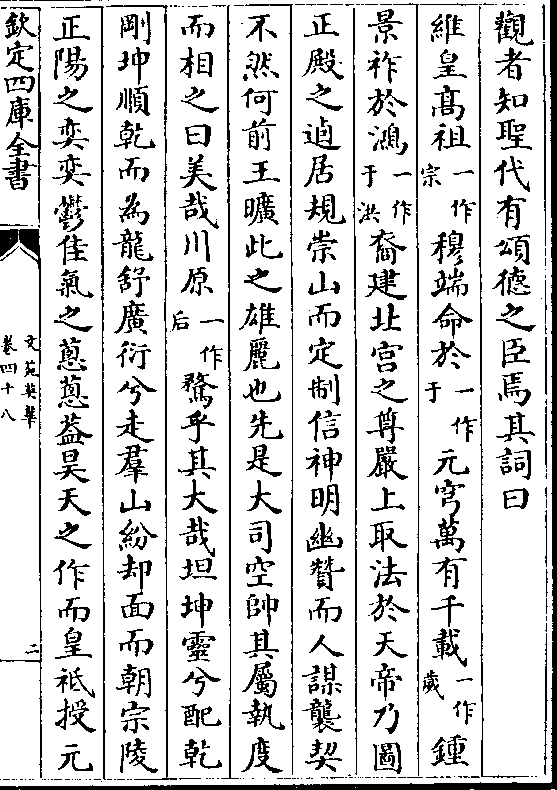 觀者知聖代有頌德之臣焉其詞曰
維皇髙祖一作宗穆端命於一作于元穹萬有千載一作歲鍾
景祚於鴻一作于洪裔建北宫之尊嚴上取法於天帝乃圖
正殿之逌居規崇山而定制信神明幽贊而人謀襲契
不然何前王曠此之雄麗也先是大司空帥其屬執度
而相之曰美哉川原一作后驁乎其大哉坦坤靈兮配乾
剛坤順乾而為龍舒廣衍兮走羣山紛却面而朝宗陵
正陽之奕奕鬱佳氣之蔥蔥葢昊天之作而皇祗授元
欽定四庫全書
文苑英華
卷四十八
二